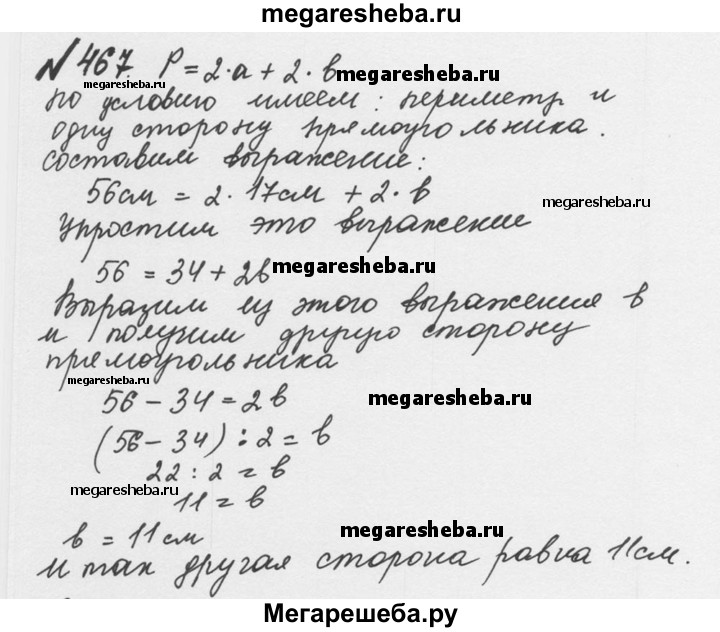 megaresheba.ru
№ 467. P = 2·a + 2·b
megaresheba.ru
megaresheba.ru
по условию имеем: периметр и
одну сторону прямоугольника.
составим выражение:
56см = 2·17см + 2·b
megaresheba.ru
Упростим это выражение
56 = 34 + 2b
megaresheba.ru
Выразим из этого выражения b
и получим другую сторону
прямоугольника
megaresheba.ru
56 - 34 = 2b
megaresheba.ru
(56 - 34) : 2 = b
22 : 2 = b
megaresheba.ru
11 = b
b = 11см
megaresheba.ru
итак другая сторона равна 11см.
Мегарешеба.ру